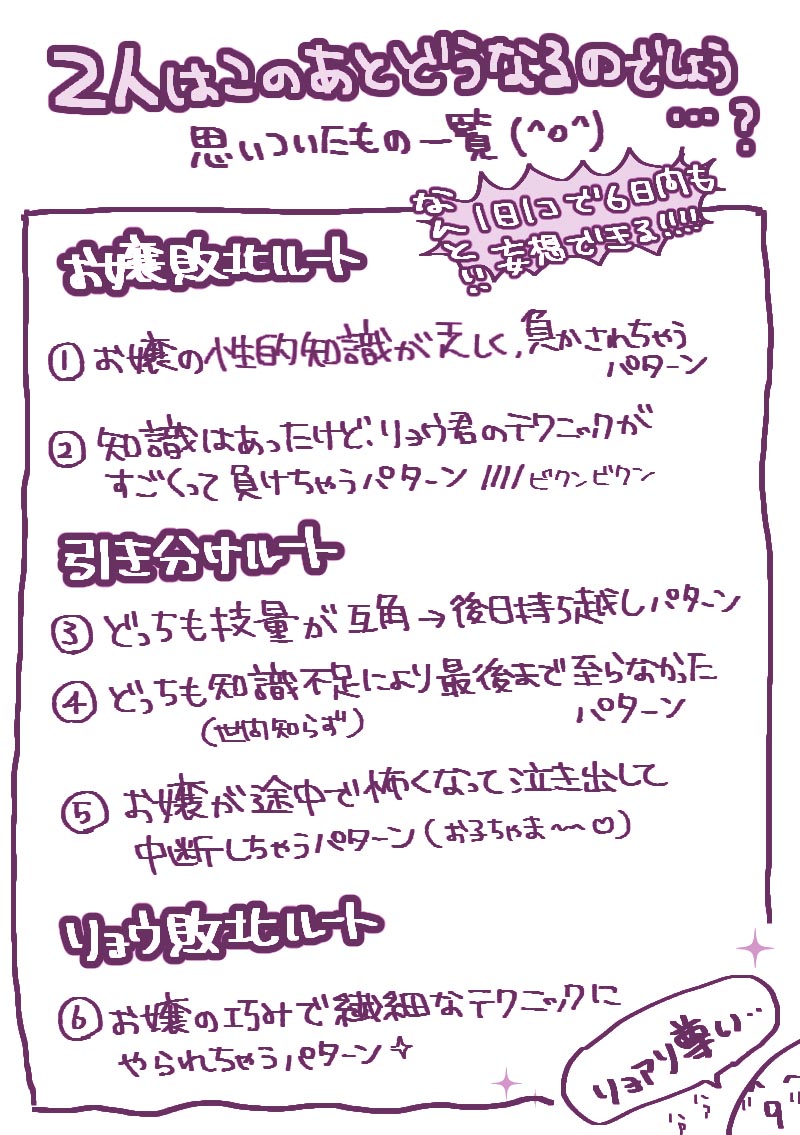 2人はこのあとどうなるのでしょう
…?
思いついたもの一覧(^o^)
なんと…
1日1コで6日内も
妄想できる!!!!
お嬢敗北ルート
① お嬢の性的知識が乏しく、負かされちゃう
パターン
② 知識はあったけど、リョウ君のテクニックが
すごくって負けちゃうパターン //// ビクンビクン
引き分けルート
③ どっちも技量が互角→後日持ち越しパターン
④ どっちも知識不足により最後まで至らなかった
(世間知らず)
パターン
⑤ お嬢が途中で怖くなって泣き出して
中断しちゃうパターン(お子ちゃま～～♡)
リョウ敗北ルート
⑥ お嬢の巧みで繊細なテクニックに
やられちゃうパターン✧
リョアリ尊い…